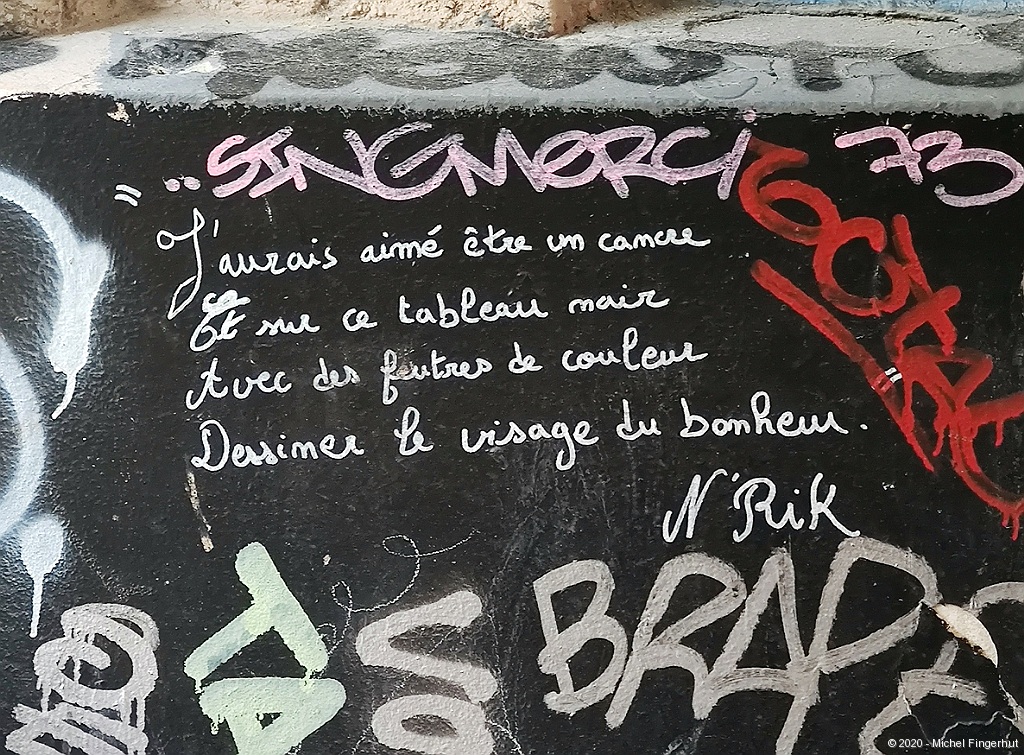 SINEMERCI 73
"J'aurais aimé être un cancre
Et sur ce tableau noir
Avec des feutres de couleur
Dessiner le visage du bonheur."
N'RiK
BRAP
© 2020 - Michel Fingerhut